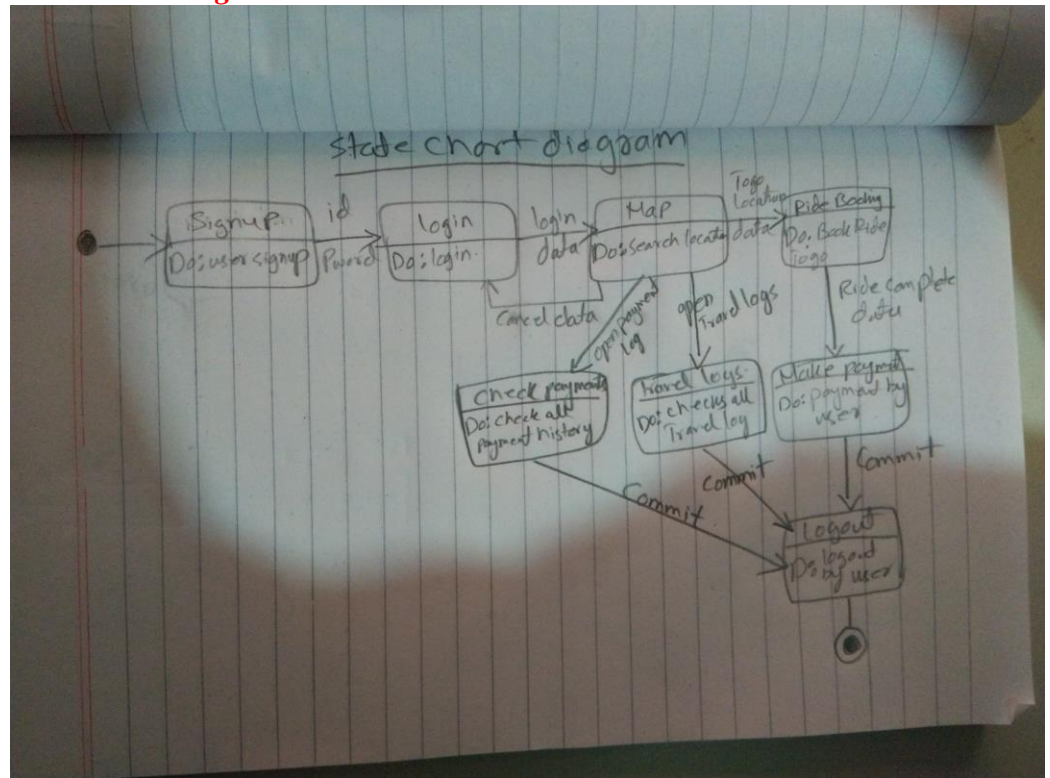 g
State chart diagram
Signup
Do: user signup
id
Pword
login
Do: login.
login
data
Map
Do: search locatio
Togo
Location
data
Ride Booking
Do: Book Ride
Togo
Cancel data
open payment
log
open
Travel logs
Ride complete
data
Check payments
Do: check all
payment history
Travel logs.
Do: checks all
Travel log
Make payment
Do: payment by
user
Commit
Commit
Commit
Logout
Do: logout
by user